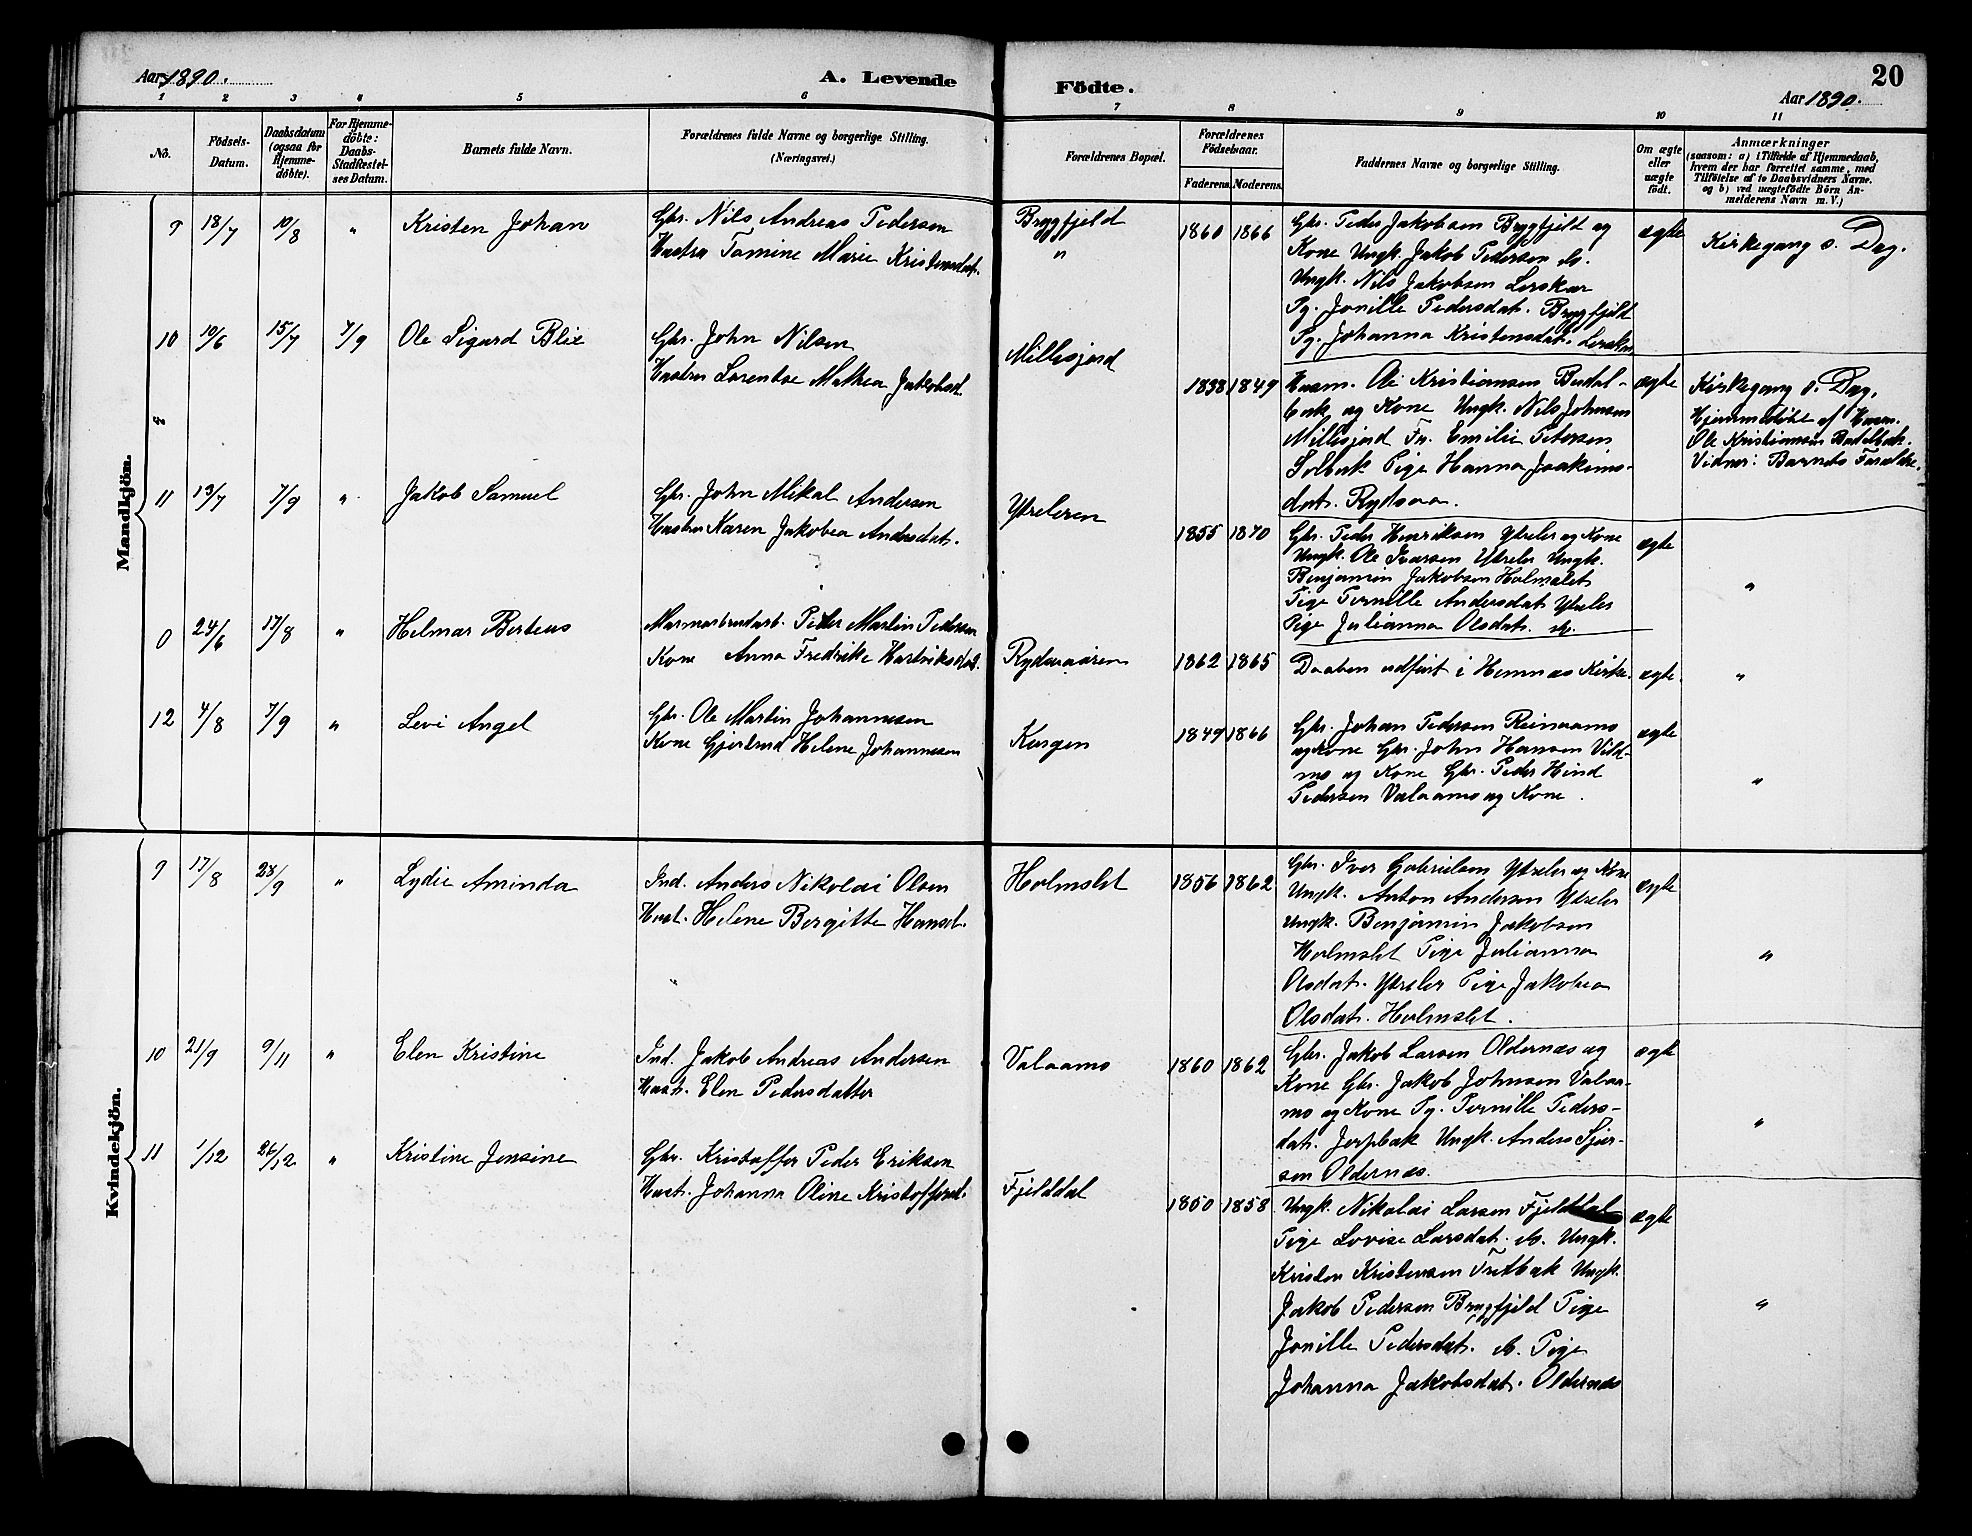 Aar 1890.
A. Levende
Födte.
20
Aar 1890.
1 2 3 4 5 6 7 8 9 10 11
No.
Födsels-Datum.
Daabsdatum (ogsaa for Hjemme-döbte).
For Hjemme-döbte: Daabs-Stadfæstel-ses Datum.
Barnets fulde Navn.
Forældrenes fulde Navne og borgerlige Stilling.
(Næringsvei.)
Forældrenes Bopæl.
Forældrenes Födselsaar.
Faderens. Moderens.
Faddernes Navne og borgerlige Stilling.
Om ægte eller uægte födt.
Anmærkninger
(saasom: a) i Tilfælde af Hjemmedaab, hvem der har forrettet samme, med Tilföielse af to Daabsvidners Navne. og b) ved uægtefödte Börn An-melderens Navn m. V.)
Mandkjön.
9 18/7 10/8 " Kristen Johan
Gbr. Nils Andreas Pedersen
Hustru Tomine Marie Kristensdat.
Brygfjeld
"
1860 1866
Gbr. Peder Jakobsen Brygfjeld og
Kone Ungk. Jakob Pedersen
Ungk. Nils Jakobsen Lerskar
Pg. Jonille Pedersdat. Brygfjeld
Pg. Johanna Kristensdat.
ægte
Kirkegang s. Dag.
10 10/6 15/7 7/9 Ole Sigard Blix
Gbr. John Nilsen
Hustru Lorentse Mathea
Millesjord
1838 1849
Husm. Ole Kristiansen
og Kone Ungk. Nils Johnsen
Millesjord Fr. Emilie Petersen
Pige Hanna Joakims-
dat. Rydsaa.
ægte
Kirkegang s. Dag.
Hjemmedøbt af Husm.
Ole Kristiansen
Vidner: Barnets Forældre.
11 13/7 7/9 " Jakob Samuel
Gbr. John Mikal Andersen
Hustru Karen Jakobea Andersdat.
Ytreleren
1855 1870
Gbr. Peder Henriksen Ytreler og Kone
Ungk. Ole Iversen Ytreler Ungk.
Benjamin Jakobsen Holmslet
Pige Pernille Andersdat. Ytreler
Pige Julianna Olsdat.
ægte
"
0 24/6 17/8 " Helmar Berteus
Marmorbrudarb. Peder Martin Pedersen
Kone Anna Fredrikke Hartviksdat.
Rydsaaaren
1862 1865
Daaben udført i Hemnæs Kirke.
ægte.
"
12 4/8 7/9 " Levi Angel
Gbr. Ole Martin Johannesen
Kone Gjertrud Helene Johannesen
Kangen
1849 1866
Gbr. Johan Pedersen Reinaamo
og Kone Gbr. John Hansen Vild-
mo og Kone Gbr. Peder Hind
Pedersen Valaamo og Kone.
ægte
"
Kvindekjön.
9 17/8 28/9 " Lydie Aminda
Ind. Anders Nikolai Olsen
Hust. Helene Birgitte Hansd.
"
Holmslet
1856 1862
Gbr. Iver Gabrielsen Ytreler og Kone
Ungk. Anton Andersen Ytreler
Ungk. Benjamin Jakobsen
Holmslet Pige Julianna
Olsdat. Ytreler Pige Jakobea
Olsdat. Holmslet.
ægte
"
10 21/9 9/11 " Elen Kristine
Ind. Jakob Andreas Andersen
Hust. Elen Pedersdatter
Valaamo
1860 1862
Gbr. Jakob Larsen Oldernæs og
Kone Gbr. Jakob Johnsen Valaa-
mo og Kone Pg. Pernille Peders-
dat. Jerpbak Ungk. Anders Sjur-
sen Oldernæs.
ægte
"
11 1/12 26/12 " Kristine Jensine
Gbr. Kristoffer Peder Eriksen
Hust. Johanna Oline Kristoffersd.
Fjelddal
1850 1858
Ungk. Nikolai Larsen Fjelddal
Pige Lovise Larsdat. Ungk.
Kristen Kristensen Ungk.
Jakob Pedersen Brygfjeld Pige
Jonille Pedersdat. Pige
Johanna Jakobsdat. Oldernæs
ægte
"